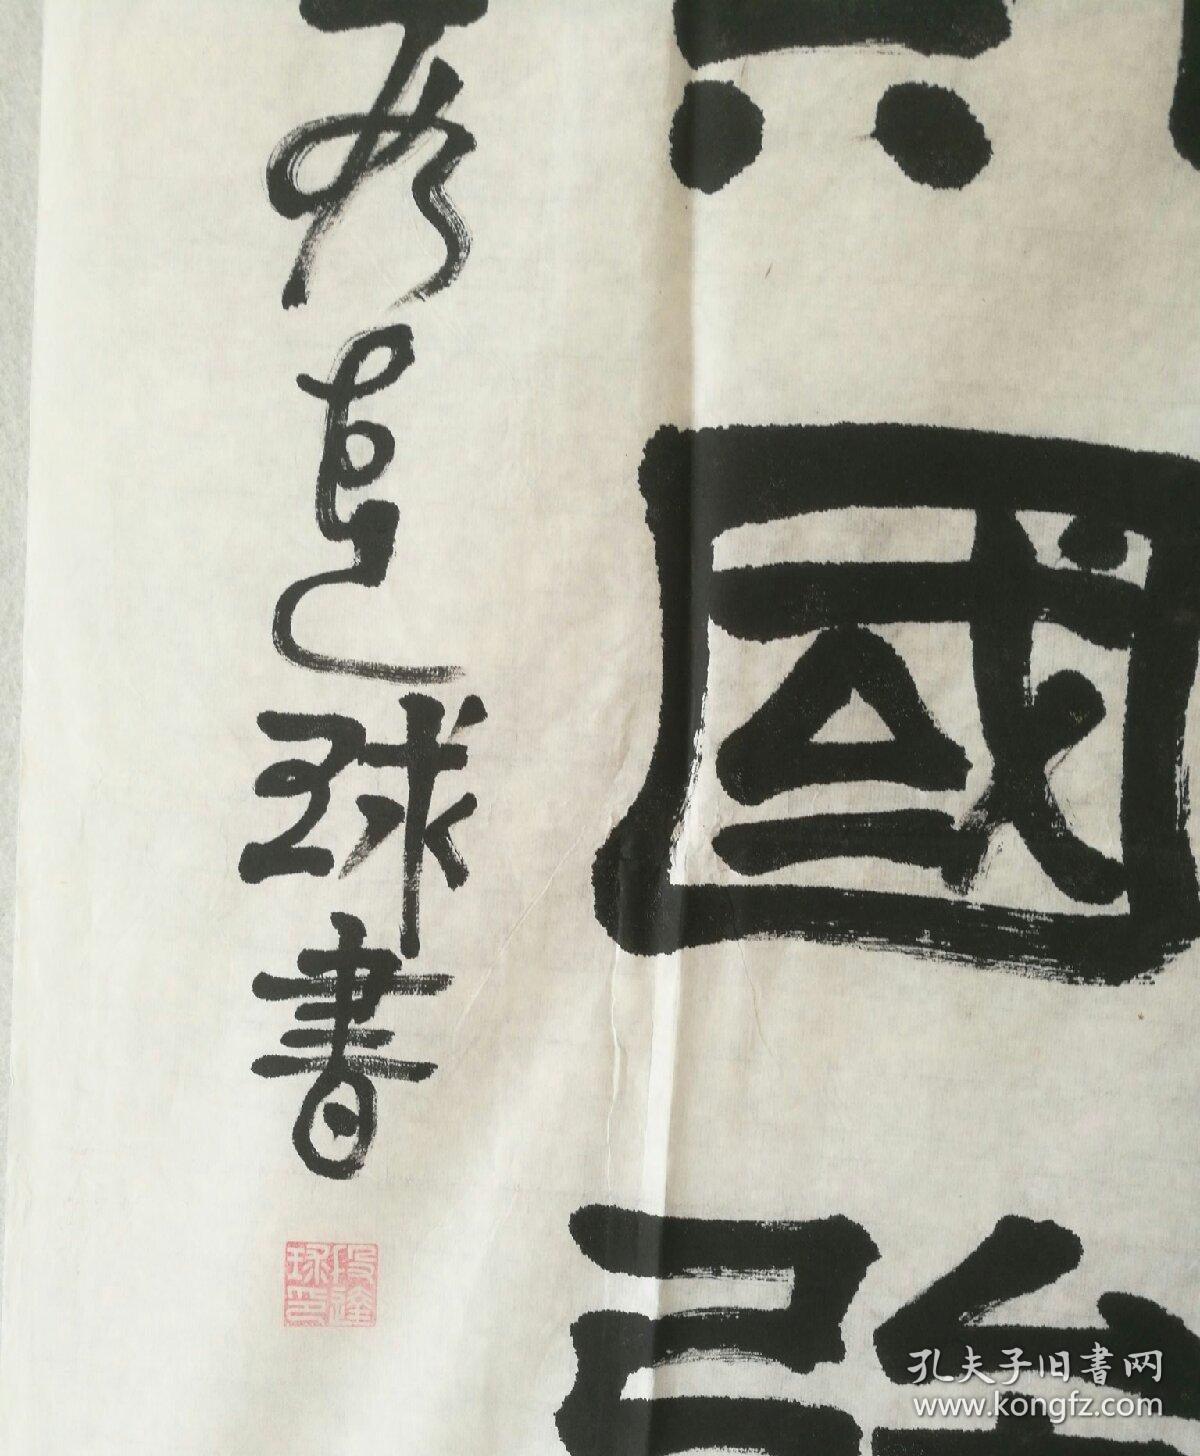 國
達球書
段達球印
孔夫子旧書网
www.kongfz.com